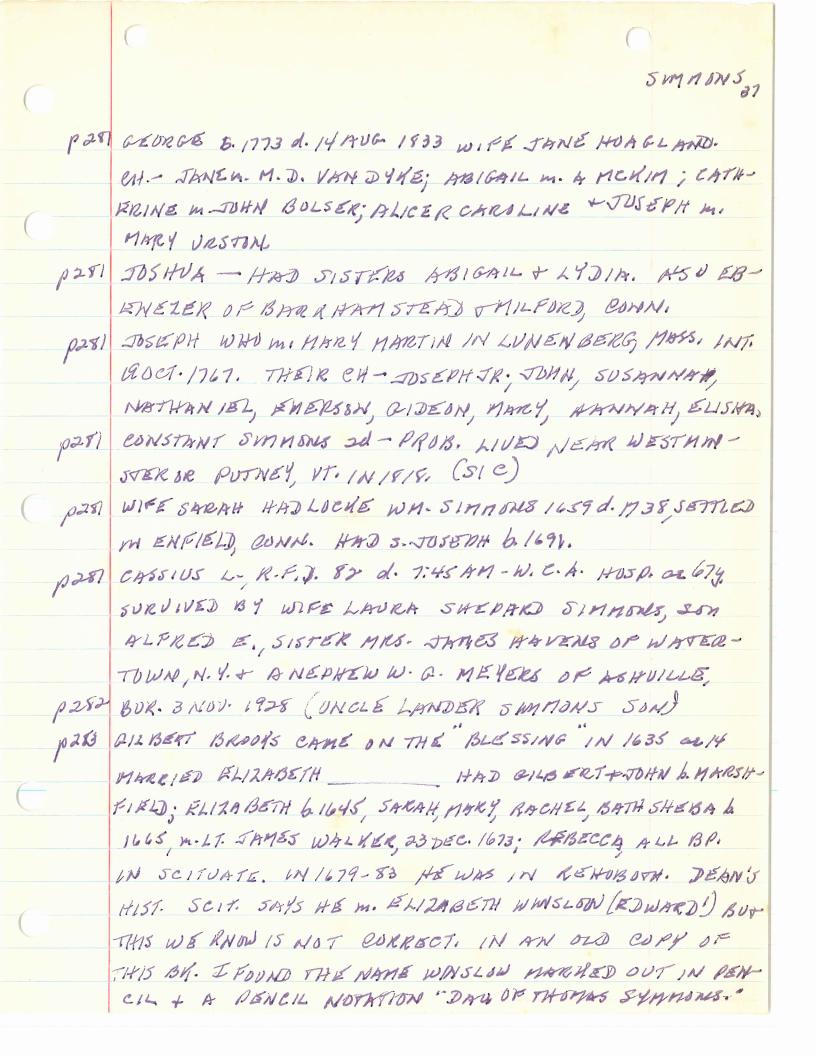 SIMMONS
37
p281 GEORGE B. 1773 d. 14 AUG. 1833 WIFE JANE HOAGLAND.
CH.- JANE m. M.D. VAN DYKE; ABIGAIL m. A MCKIM; CATH-
ERINE m. JOHN BOLSER; ALICE R CAROLINE & JOSEPH m.
MARY URSTON.
p281 JOSHUA — HAD SISTERS ABIGAIL & LYDIA. ALSO EB-
ENEZER OF BARRHAMSTEAD & MILFORD, CONN.
p281 JOSEPH WHO m. MARY MARTIN IN LUNENBERG, MASS. INT.
19 OCT. 1767. THEIR CH — JOSEPH JR., JOHN, SUSANNAH,
NATHANIEL, EMERSON, GIDEON, MARY, HANNAH, ELISHA.
p281 CONSTANT SIMMONS 2d — PROB. LIVED NEAR WESTMIN-
STER OR PUTNEY, VT. IN 1818. (SIC)
p281 WIFE SARAH HADLOCKE WM. SIMMONS 1659 d. 1738, SETTLED
IN ENFIELD, CONN. HAD S. JOSEPH b. 1691.
p281 CASSIUS L., R.F.D. 82 d. 7:45 AM - W.C.A. HOSP. ae 67y.
SURVIVED BY WIFE LAURA SHEPARD SIMMONS, SON
ALFRED E., SISTER MRS. JAMES HAVENS OF WATER-
TOWN, N.Y. & A NEPHEW W. G. MEYERS OF ASHVILLE,
p282 BUR. 3 NOV. 1928 (UNCLE LANDER SIMMONS SON)
p283 GILBERT BROOKS CAME ON THE "BLESSING" IN 1635 ae 14
MARRIED ELIZABETH ________ HAD GILBERT & JOHN b. MARSH-
FIELD; ELIZABETH b. 1645, SARAH, MARY, RACHEL, BATHSHEBA b
1665, m. LT. JAMES WALKER, 23 DEC. 1673; REBECCA, ALL BP.
IN SCITUATE. IN 1679-83 HE WAS IN REHOBOTH. DEAN'S
HIST. SCIT. SAYS HE m. ELIZABETH WINSLOW (EDWARD¹) BUT
THIS WE KNOW IS NOT CORRECT. IN AN OLD COPY OF
THIS BK. I FOUND THE NAME WINSLOW MARKED OUT IN PEN-
CIL & A PENCIL NOTATION "DAU OF THOMAS SYMMONS."